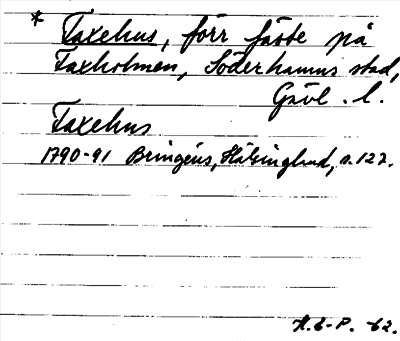 * Faxehus, förr fäste på
Faxholmen, Söderhamns stad,
Gävl. l.
Faxehus
1790-91 Bringéus, Hälsingland, s. 127.
H. L-P. -62.